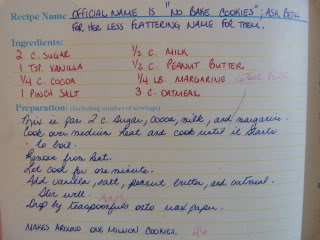 Recipe Name OFFICIAL NAME IS "NO BAKE COOKIES"; ASK BETH
FOR HER LESS FLATTERING NAME FOR THEM.
Ingredients:
2 C. SUGAR ½ C. MILK
1 TSP. VANILLA ½ C. PEANUT BUTTER
¼ C. COCOA ¼ LB. MARGARINE
1 PINCH SALT 3 C. OATMEAL
Preparation: (Including number of servings)
This is for 2 c. sugar, cocoa, milk, and margarine.
Cook over medium heat and cook until it starts
to boil.
Remove from heat.
Let cool for one minute.
Add vanilla, salt, peanut butter, and oatmeal.
Stir well.
Drop by teaspoonfuls onto wax paper.
MAKES AROUND ONE MILLION COOKIES.